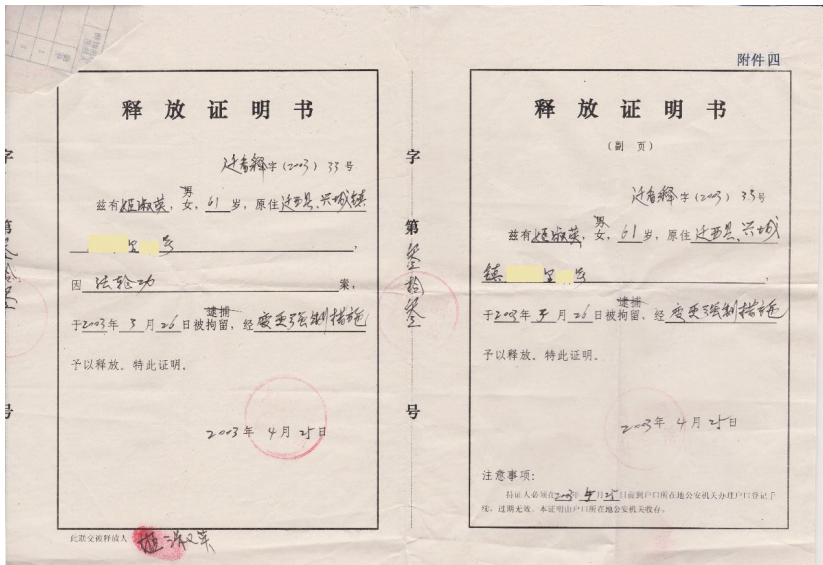 附件四
释放证明书
迁看释字(2003)33号
兹有姬淑英,男女,61岁,原住迁西县兴城镇
里 号,
因法轮功案,
于2003年3月26日被逮捕拘留,经变更强制措施
予以释放。特此证明。
2003年4月25日
此联交被释放人
字第叁拾叁号
释放证明书
(副页)
迁看释字(2003)33号
兹有姬淑英,男女,61岁,原住迁西县兴城
镇 里 号,
于2003年3月26日被逮捕拘留,经变更强制措施
予以释放。特此证明。
2003年4月25日
注意事项:
持证人必须在2003年 月25日前到户口所在地公安机关办理户口登记手
续,过期无效。本证明由户口所在地公安机关收存。